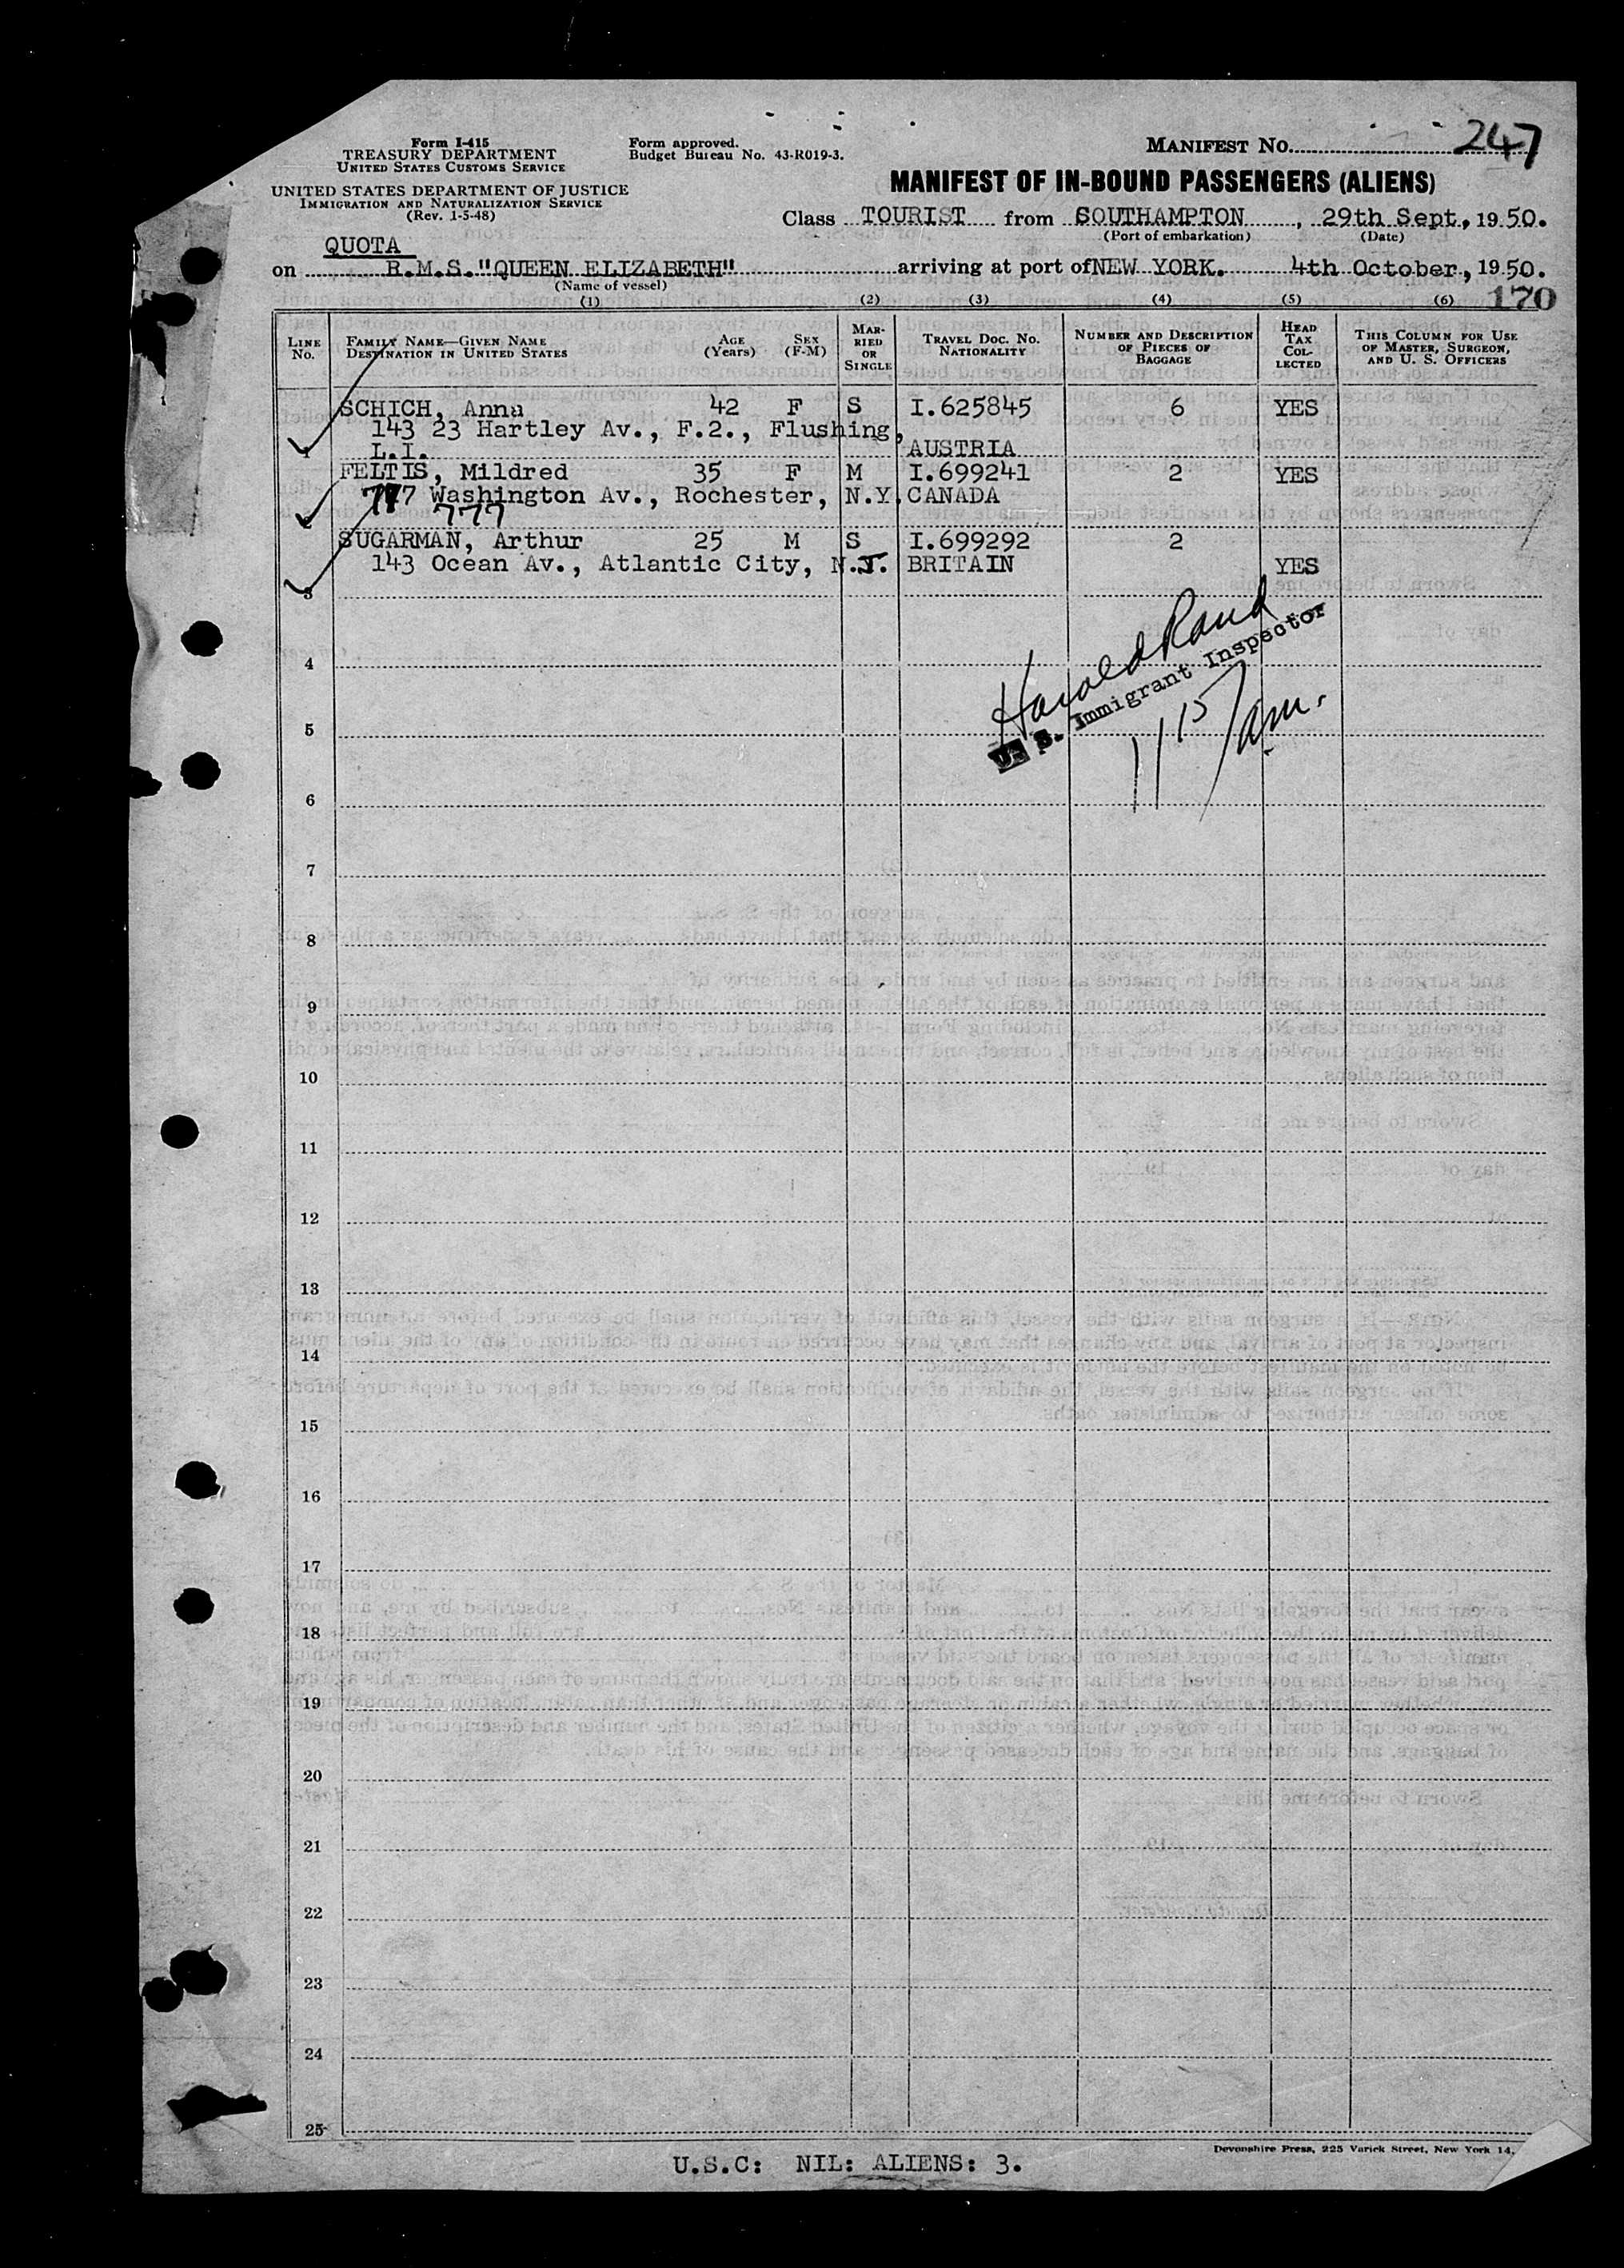 Form I-415
TREASURY DEPARTMENT
UNITED STATES CUSTOMS SERVICE
UNITED STATES DEPARTMENT OF JUSTICE
IMMIGRATION AND NATURALIZATION SERVICE
(Rev. 1-5-48)
Form approved.
Budget Bureau No. 43-R019-3.
MANIFEST NO. 247
MANIFEST OF IN-BOUND PASSENGERS (ALIENS)
Class TOURIST from SOUTHAMPTON, 29th Sept, 1950.
(Port of embarkation) (Date)
QUOTA
on R.M.S."QUEEN ELIZABETH" arriving at port of NEW YORK. 4th October, 1950.
(Name of vessel)
170
(1) (2) (3) (4) (5) (6)
LINE NO.
FAMILY NAME—GIVEN NAME
DESTINATION IN UNITED STATES
AGE (Years)
SEX (F-M)
MARRIED OR SINGLE
TRAVEL DOC. NO.
NATIONALITY
NUMBER AND DESCRIPTION OF PIECES OF BAGGAGE
HEAD TAX COLLECTED
THIS COLUMN FOR USE OF MASTER, SURGEON, AND U. S. OFFICERS
SCHICH, Anna 42 F S I.625845 6 YES
143 23 Hartley Av., F.2., Flushing,
1 L.I. AUSTRIA
FELTIS, Mildred 35 F M I.699241 2 YES
777 Washington Av., Rochester, N.Y. CANADA
2 777
SUGARMAN, Arthur 25 M S I.699292 2
143 Ocean Av., Atlantic City, N.J. BRITAIN YES
3
Harold Rand
U. S. Immigrant Inspector
11 15/am.
4
5
6
7
8
9
10
11
12
13
14
15
16
17
18
19
20
21
22
23
24
25
Devonshire Press, 225 Varick Street, New York 14,
U.S.C: NIL: ALIENS: 3.